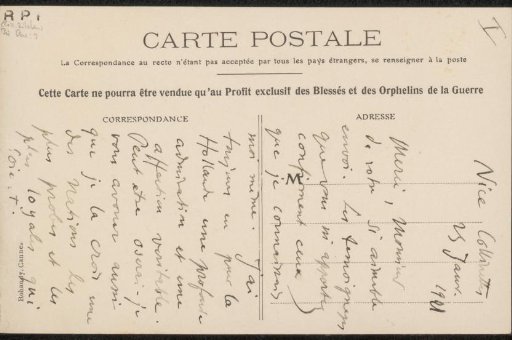 R.P.
I
CARTE POSTALE
La Correspondance au recto n'étant pas acceptée par tous les pays étrangers, se renseigner à la poste
Cette Carte ne pourra être vendue qu'au Profit exclusif des Blessés et des Orphelins de la Guerre
CORRESPONDANCE
ADRESSE
M
Nice
25 Janv. 1921
Merci, Monsieur
de votre si aimable
envoi. Les témoignages
que vous m'apportez
confirment ceux
que je connaissais
moi même. J'ai
toujours eu pour la
Hollande une profonde
admiration et une
affection véritable.
Peut être oserai-je
vous avouer aussi
que je la crois une
des nations les
plus probes et les
plus loyales qui
soient.